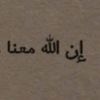 إن الله معنا